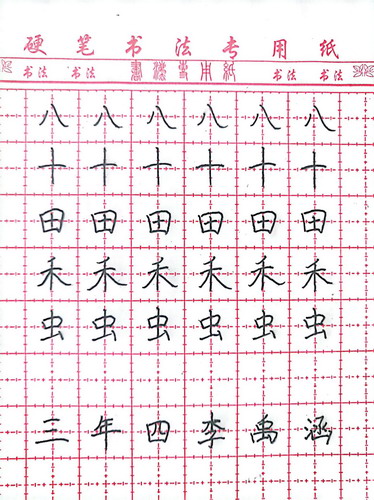 硬笔书法专用纸
书法 书法 書法專用紙 书法 书法
八八八八八八
十十十十十十
田田田田田田
禾禾禾禾禾禾
虫虫虫虫虫虫
三年四李禹涵